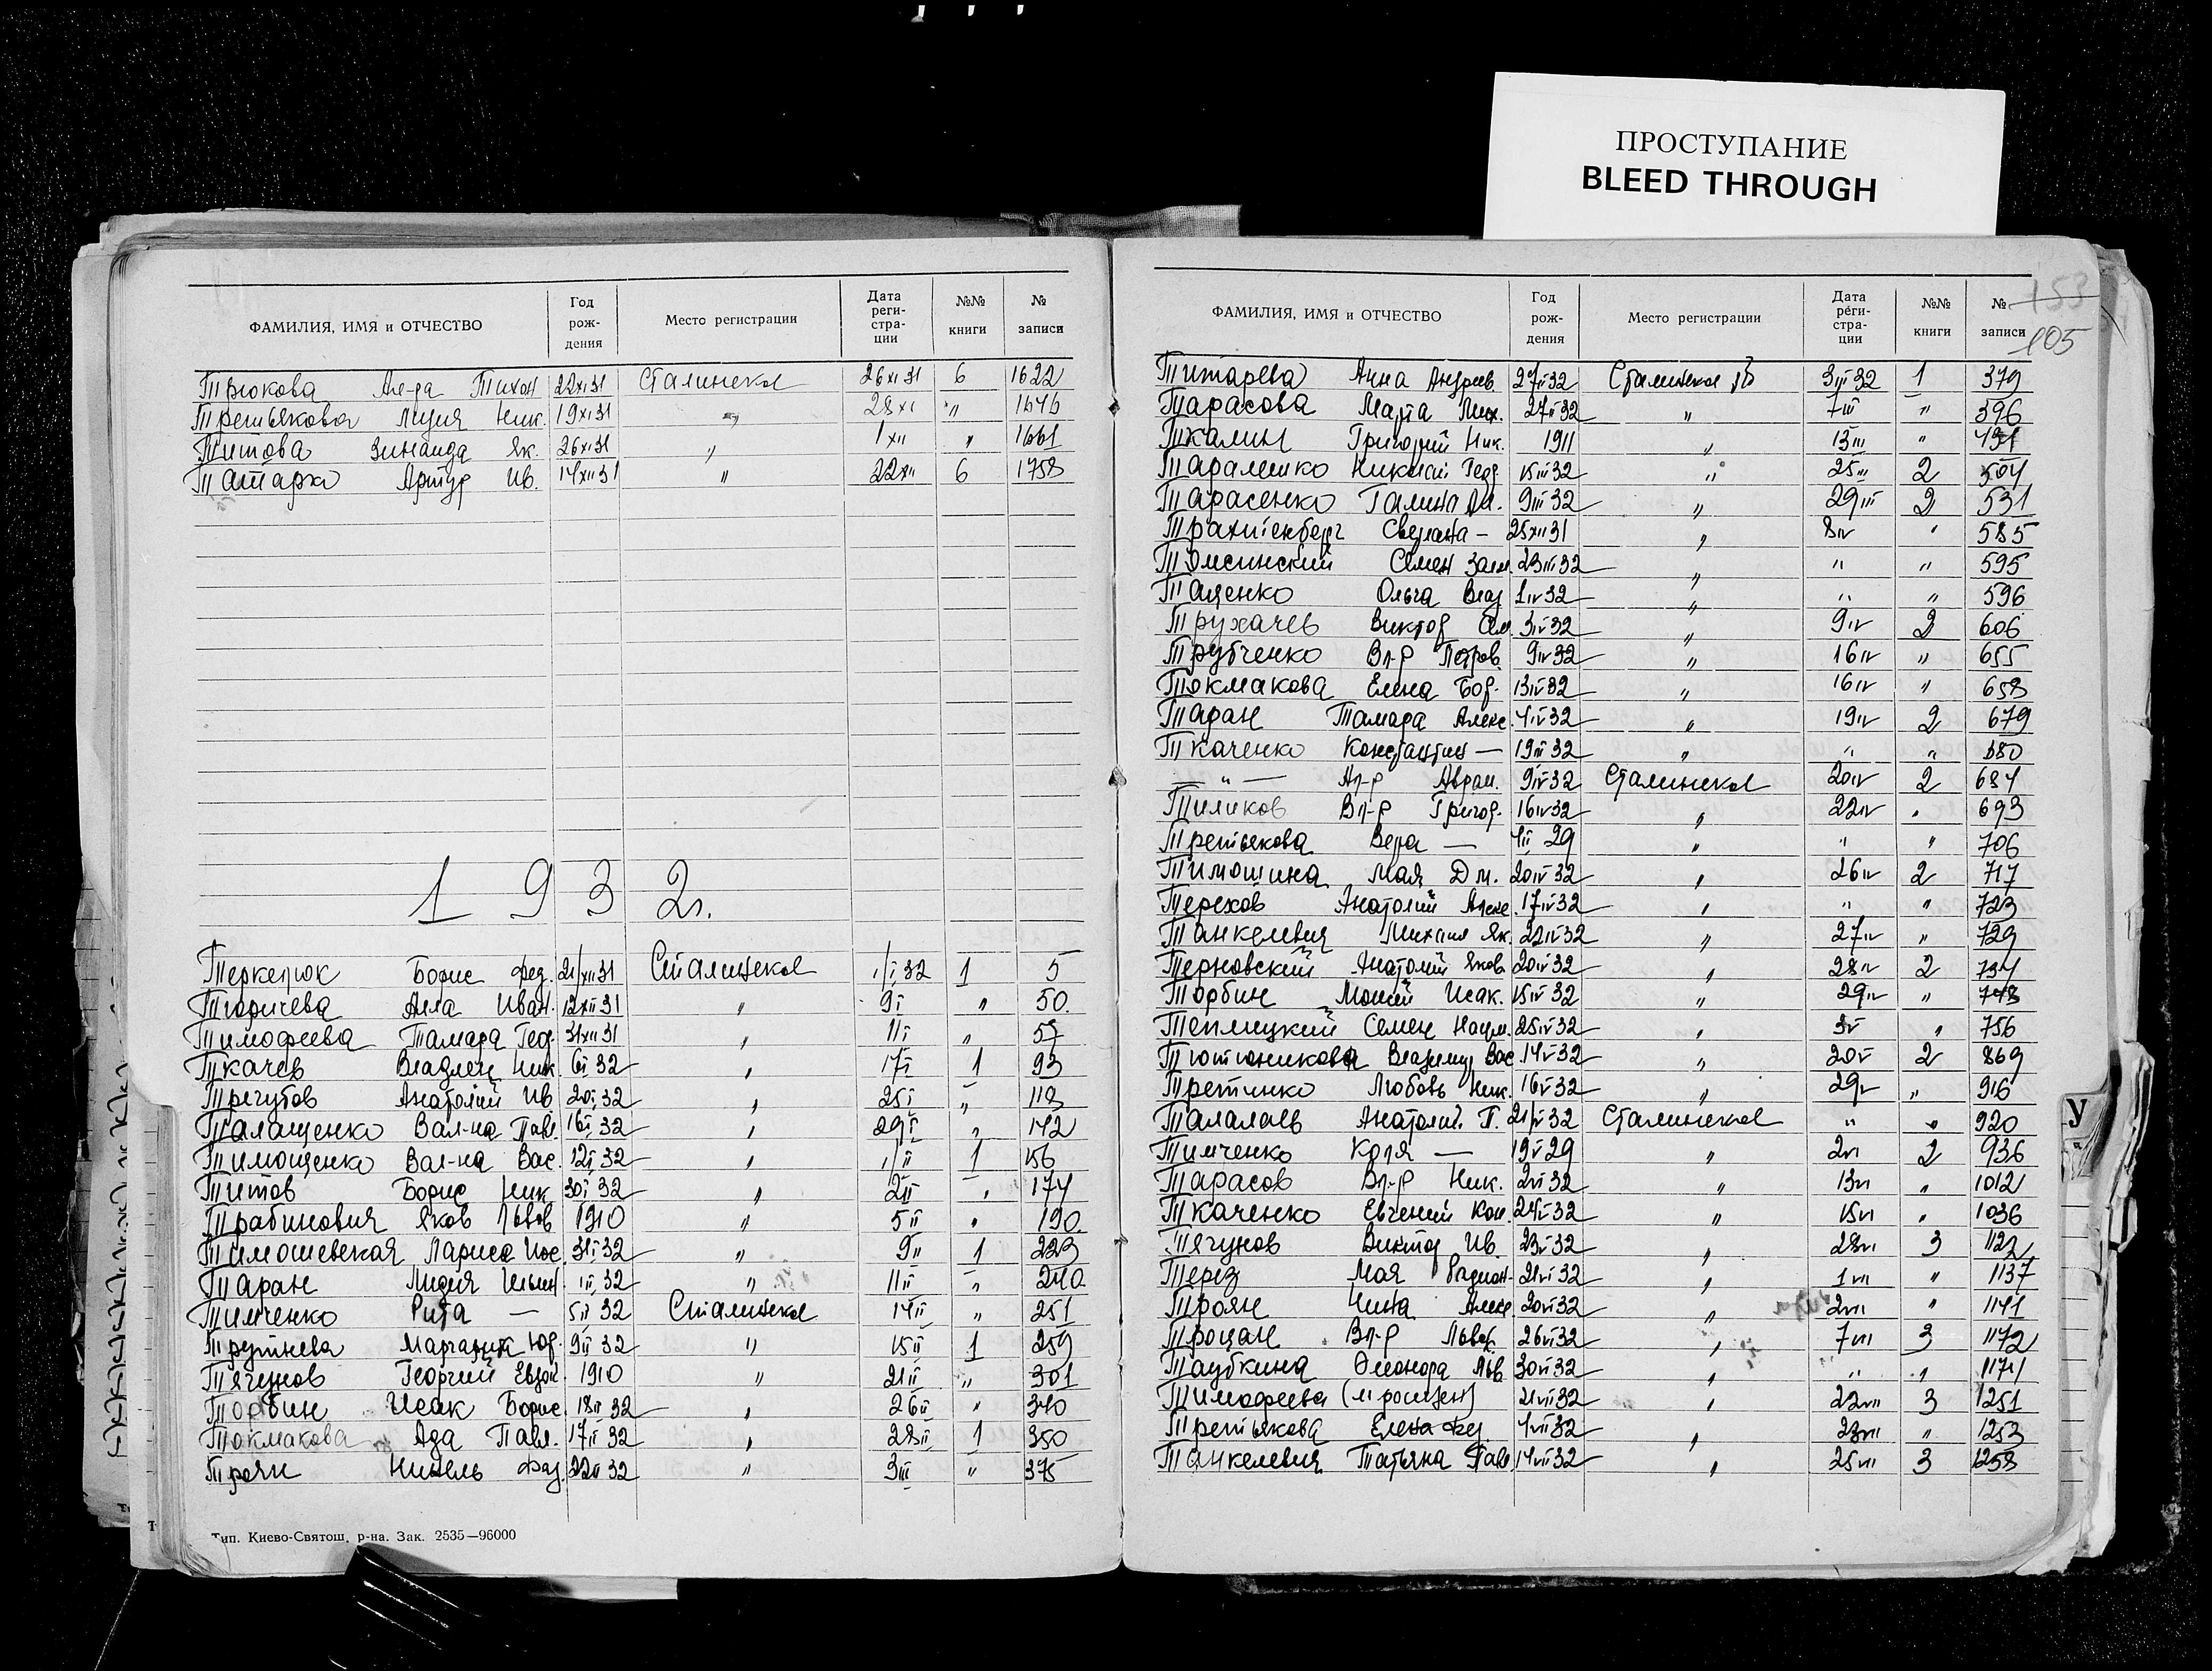 ПРОСТУПАНИЕ
BLEED THROUGH
ФАМИЛИЯ, ИМЯ и ОТЧЕСТВО Год рождения Место регистрации Дата реги-стра-ции №№ книги № записи
Трюкова Ал-ра Тихон 22 XI 31 Сталинская 26 XI 31 6 1622
Третьякова Лидия Ник. 19 XI 31 〃 28 XI 〃 1646
Титова Зинаида Як. 26 XI 31 〃 1 XII 〃 1661
Татарко Артур Ив. 14 XII 31 〃 22 XII 6 1758
1932г.
Теркетюк Борис Фед. 21/XII 31 Сталинская 1/I 32 1 5
Тюричева Алла Иван. 12 XII 31 〃 9 I 〃 50.
Тимофеева Тамара Геор. 31 XII 31 〃 11 I 〃 57
Ткачев Владлен Ник. 6 I 32 〃 17 I 1 93
Трегубов Анатолий Ив 20 I 32 〃 25 I 〃 119
Талащенко Вал-на Павл. 16 I 32 〃 29 I 〃 142
Тимощенко Вал-на Вас. 12 I 32 〃 1/II 1 156
Титов Борис Ник. 30 I 32 〃 2 II 〃 174
Трабинович Яков Львов 1910 〃 5 II 〃 190.
Тимошевская Лариса Иос. 31 I 32 〃 9 II 1 223
Таран Лидия Ильин. 1 II 32 〃 11 II 〃 240.
Тимченко Рита — 5 II 32 Сталинская 14 II 〃 251
Трутнева Маргарита Юр. 9 II 32 〃 15 II 1 259
Тягунов Георгий Евдок. 1910 〃 21 II 〃 301
Торбин Исак Борис. 18 II 32 〃 26 II 〃 340
Токмакова Ада Павл. 17 II 32 〃 28 II 1 350
Троян Нинель Фад. 22 II 32 〃 3 III 〃 375
Тип. Киево-Святош. р-на. Зак. 2535—96000
153
105
ФАМИЛИЯ, ИМЯ и ОТЧЕСТВО Год рождения Место регистрации Дата реги-стра-ции №№ книги № записи
Титарева Анна Андреев. 27 II 32 Сталинская 3 III 32 1 379
Тарасова Марта Мих. 27 II 32 〃 7 III 〃 396
Ткалин Григорий Ник. 1911 〃 13 III 〃 431
Таралешко Николай Геор 15 III 32 〃 25 III 2 504
Тарасенко Галина 9 III 32 〃 29 III 2 531
Трахтенберг Светлана — 25 XII 31 〃 8 IV 〃 585
Томсинский Семен Залм. 23 III 32 〃 〃 〃 595
Таценко Ольга Влад 1 IV 32 〃 〃 〃 596
Трухачев Виктор Сем 3 IV 32 〃 9 IV 2 606
Трубченко Вл-р Петров. 9 IV 32 〃 16 IV 〃 655
Токмакова Елена Бор. 13 IV 32 〃 16 IV 〃 658
Таран Тамара Алекс. 4 IV 32 〃 19 IV 2 679
Ткаченко Константин — 19 III 32 〃 〃 〃 680
— 〃 — Ал-р Аврам. 9 IV 32 Сталинская 20 IV 2 684
Тиликов Вл-р Григор. 16 IV 32 〃 22 IV 〃 693
Третьекова Вера — 4 II 29 〃 〃 〃 706
Тимошина Мая Дм. 20 IV 32 〃 26 IV 2 717
Терехов Анатолий Алекс. 17 IV 32 〃 〃 〃 723
Танкелевич Михаил Як. 22 IV 32 〃 27 IV 〃 729
Терновский Анатолий Яков 20 IV 32 〃 28 IV 2 734
Торбин Моисей Исак. 15 IV 32 〃 29 IV 〃 748
Теплицкий Семен Наум. 25 IV 32 〃 3 V 〃 756
Тютюникова Владимир Вас 14 V 32 〃 20 V 2 869
Третинко Любовь Ник. 16 V 32 〃 29 V 〃 916
Талалаев Анатолий П. 21/V 32 Сталинская 〃 〃 920
Тимченко Коля — 19 V 29 〃 2 VI 2 936
Тарасов Вл-р Ник. 2 VI 32 〃 13 VI 〃 1012
Ткаченко Евгений Кон. 24 V 32 〃 15 VI 〃 1036
Тягунов Виктор Ив. 23 V 32 〃 28 VI 3 1122
Терез Мая Родион. 21 VI 32 〃 1 VII 〃 1137
Троян Нина Алекс 20 VI 32 〃 2 VII 〃 1141
Троцан Вл-р Львов. 26 VI 32 〃 7 VII 3 1172
Таубкина Элеонора Льв 30 VI 32 〃 〃 〃 1174
Тимофеева (м рожден) 21 VII 32 〃 22 VII 3 1251
Третьякова Елена Фед. 4 VII 32 〃 23 VII 〃 1253
Танкелевич Татьяна Павл 14 VII 32 〃 25 VII 3 1258
У